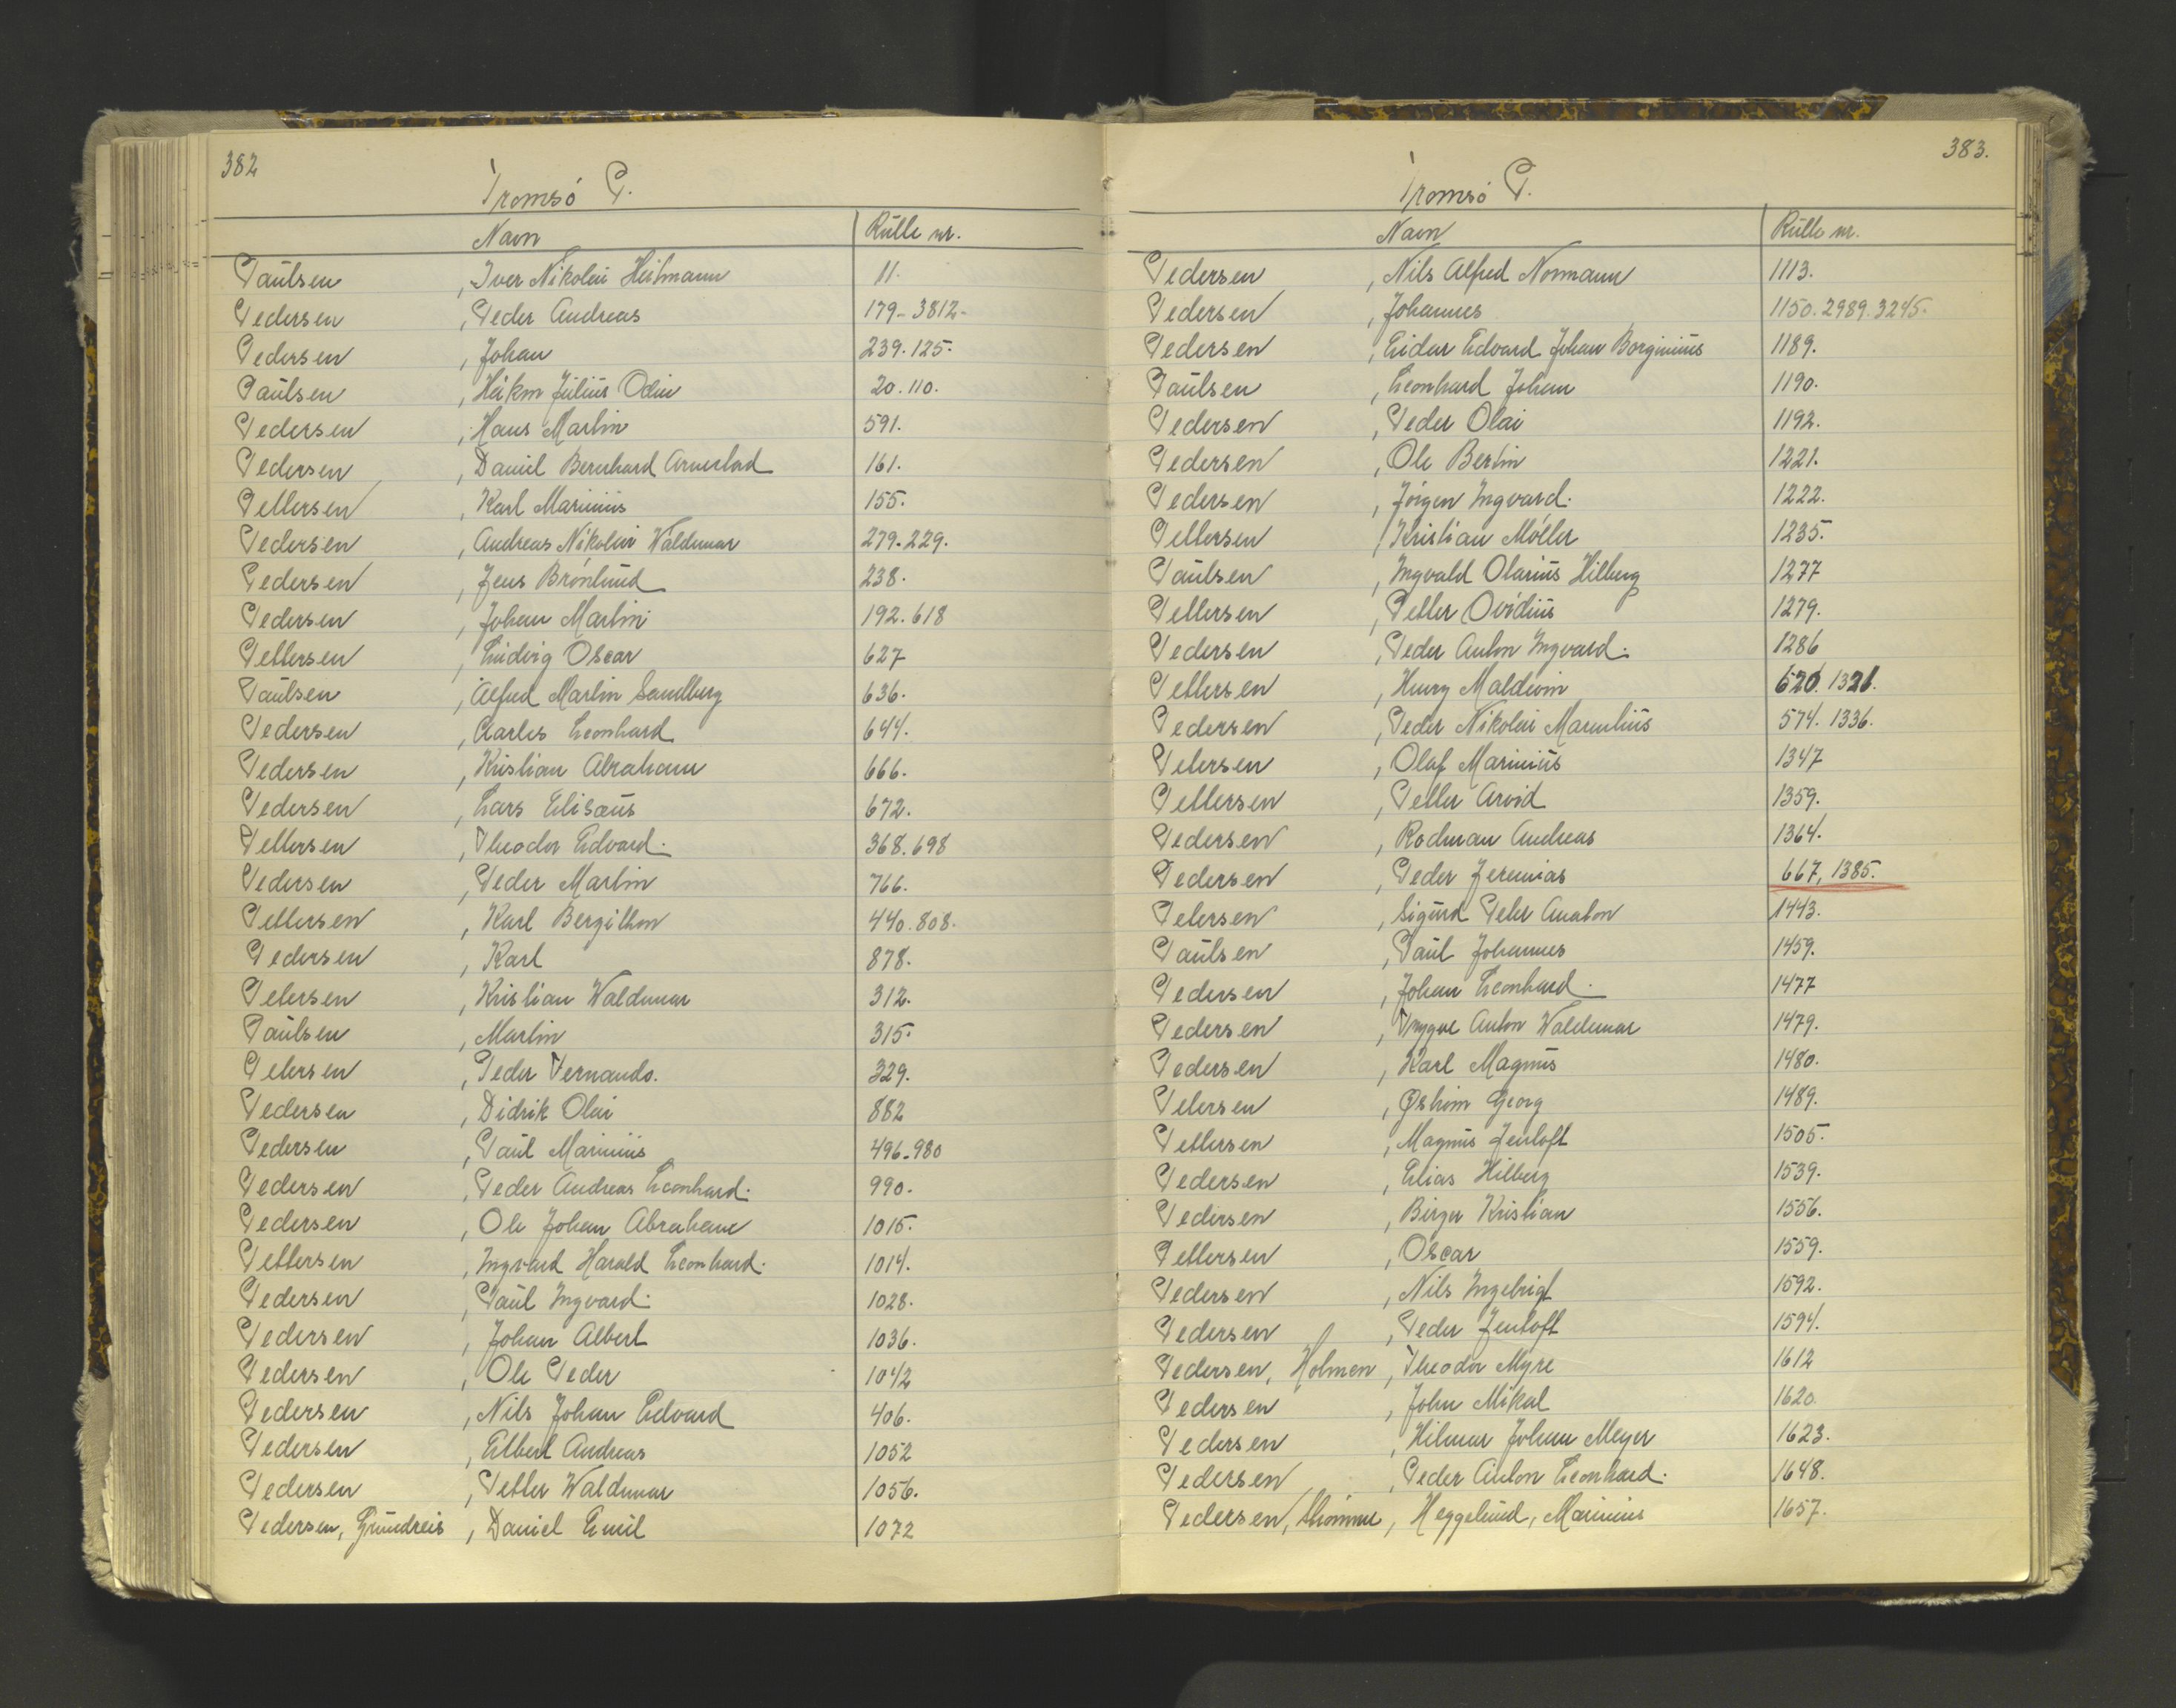 382
Tromsö P.
Navn Rulle nr.
Paulsen, Iver Nikolai Heitmann 11.
Pedersen, Peder Andreas 179-3812-
Pedersen, Johan 239.125.
Paulsen, Håkon Julius Odin 20.110.
Pedersen, Hans Martin 591.
Pedersen, Daniel Bernhard 161.
Pettersen, Karl Marinius 155.
Pedersen, Andreas Nikolai Waldemar 279.229.
Pedersen, Jens Brönlund 238.
Pedersen, Johan Martin 192.618
Pettersen, Ludvig Oscar 627
Paulsen, Alfred Martin Sandberg 636.
Pedersen, Carles Leonhard 644.
Pedersen, Kristian Abraham 666.
Pedersen, Lars Elisæus 672.
Pettersen, Theodor Edvard. 368.698
Pedersen, Peder Martin 766.
Pettersen, Karl Bergithon 440.808.
Pedersen, Karl 878.
Petersen, Kristian Waldemar 312.
Paulsen, Martin 315.
Petersen, Peder Fernando. 329.
Pedersen, Didrik Olai 882
Pedersen, Paul Marinius 496.980
Pedersen, Peder Andreas Leonhard. 990.
Pedersen, Ole Johan Abraham 1015.
Pettersen, Ingvard Harald Leonhard. 1014.
Pedersen, Paul Ingvard. 1028.
Pedersen, Johan Albert 1036.
Pedersen, Ole Peder 1042
Pedersen, Nils Johan Edvard 406.
Pedersen, Elbert Andreas 1052
Pedersen, Petter Waldemar 1056.
Pedersen, Grundreis, Daniel Emil 1072
383.
Tromsö P.
Navn Rulle nr.
Pedersen, Nils Alfred Normann 1113.
Pedersen, Johannes 1150.2989.3245.
Pedersen, Eidar Edvard Johan Borginius 1189.
Paulsen, Leonhard Johan 1190.
Pedersen, Peder Olai 1192.
Pedersen, Ole Bertin 1221.
Pedersen, Jörgen Ingvard. 1222.
Pettersen, Kristian Möller 1235.
Paulsen, Ingvald Olarius Hilberg 1277
Pettersen, Petter Ovidius 1279.
Pedersen, Peder Anton Ingvard. 1286
Pettersen, Henry Maldevin 620. 1321.
Pedersen, Peder Nikolai Marselius 574. 1336.
Petersen, Olaf Marinius 1347
Pettersen, Petter Arvid 1359.
Pedersen, Rodman Andreas 1364.
Pedersen, Peder Jeremias 667, 1385.
Petersen, Sigurd Peter Anaton 1443.
Paulsen, Paul Johannes 1459.
Pedersen, Johan Leonhard. 1477
Pedersen, Trygve Anton Waldemar 1479.
Pedersen, Karl Magnus 1480.
Petersen, Georg 1489.
Pettersen, Magnus Jentoft 1505.
Pedersen, Elias Hilberg 1539.
Pedersen, Birger Kristian 1556.
Pettersen, Oscar 1559.
Pedersen, Nils Ingebrigt 1592.
Pedersen, Peder Jentoft 1594.
Pedersen, Holmen, Theodor Myre 1612
Pedersen, John Mikal 1620.
Pedersen, Hilmar Johan Meyer 1623.
Pedersen, Peder Anton Leonhard. 1648.
Pedersen, Heggelund, Marinius 1657.